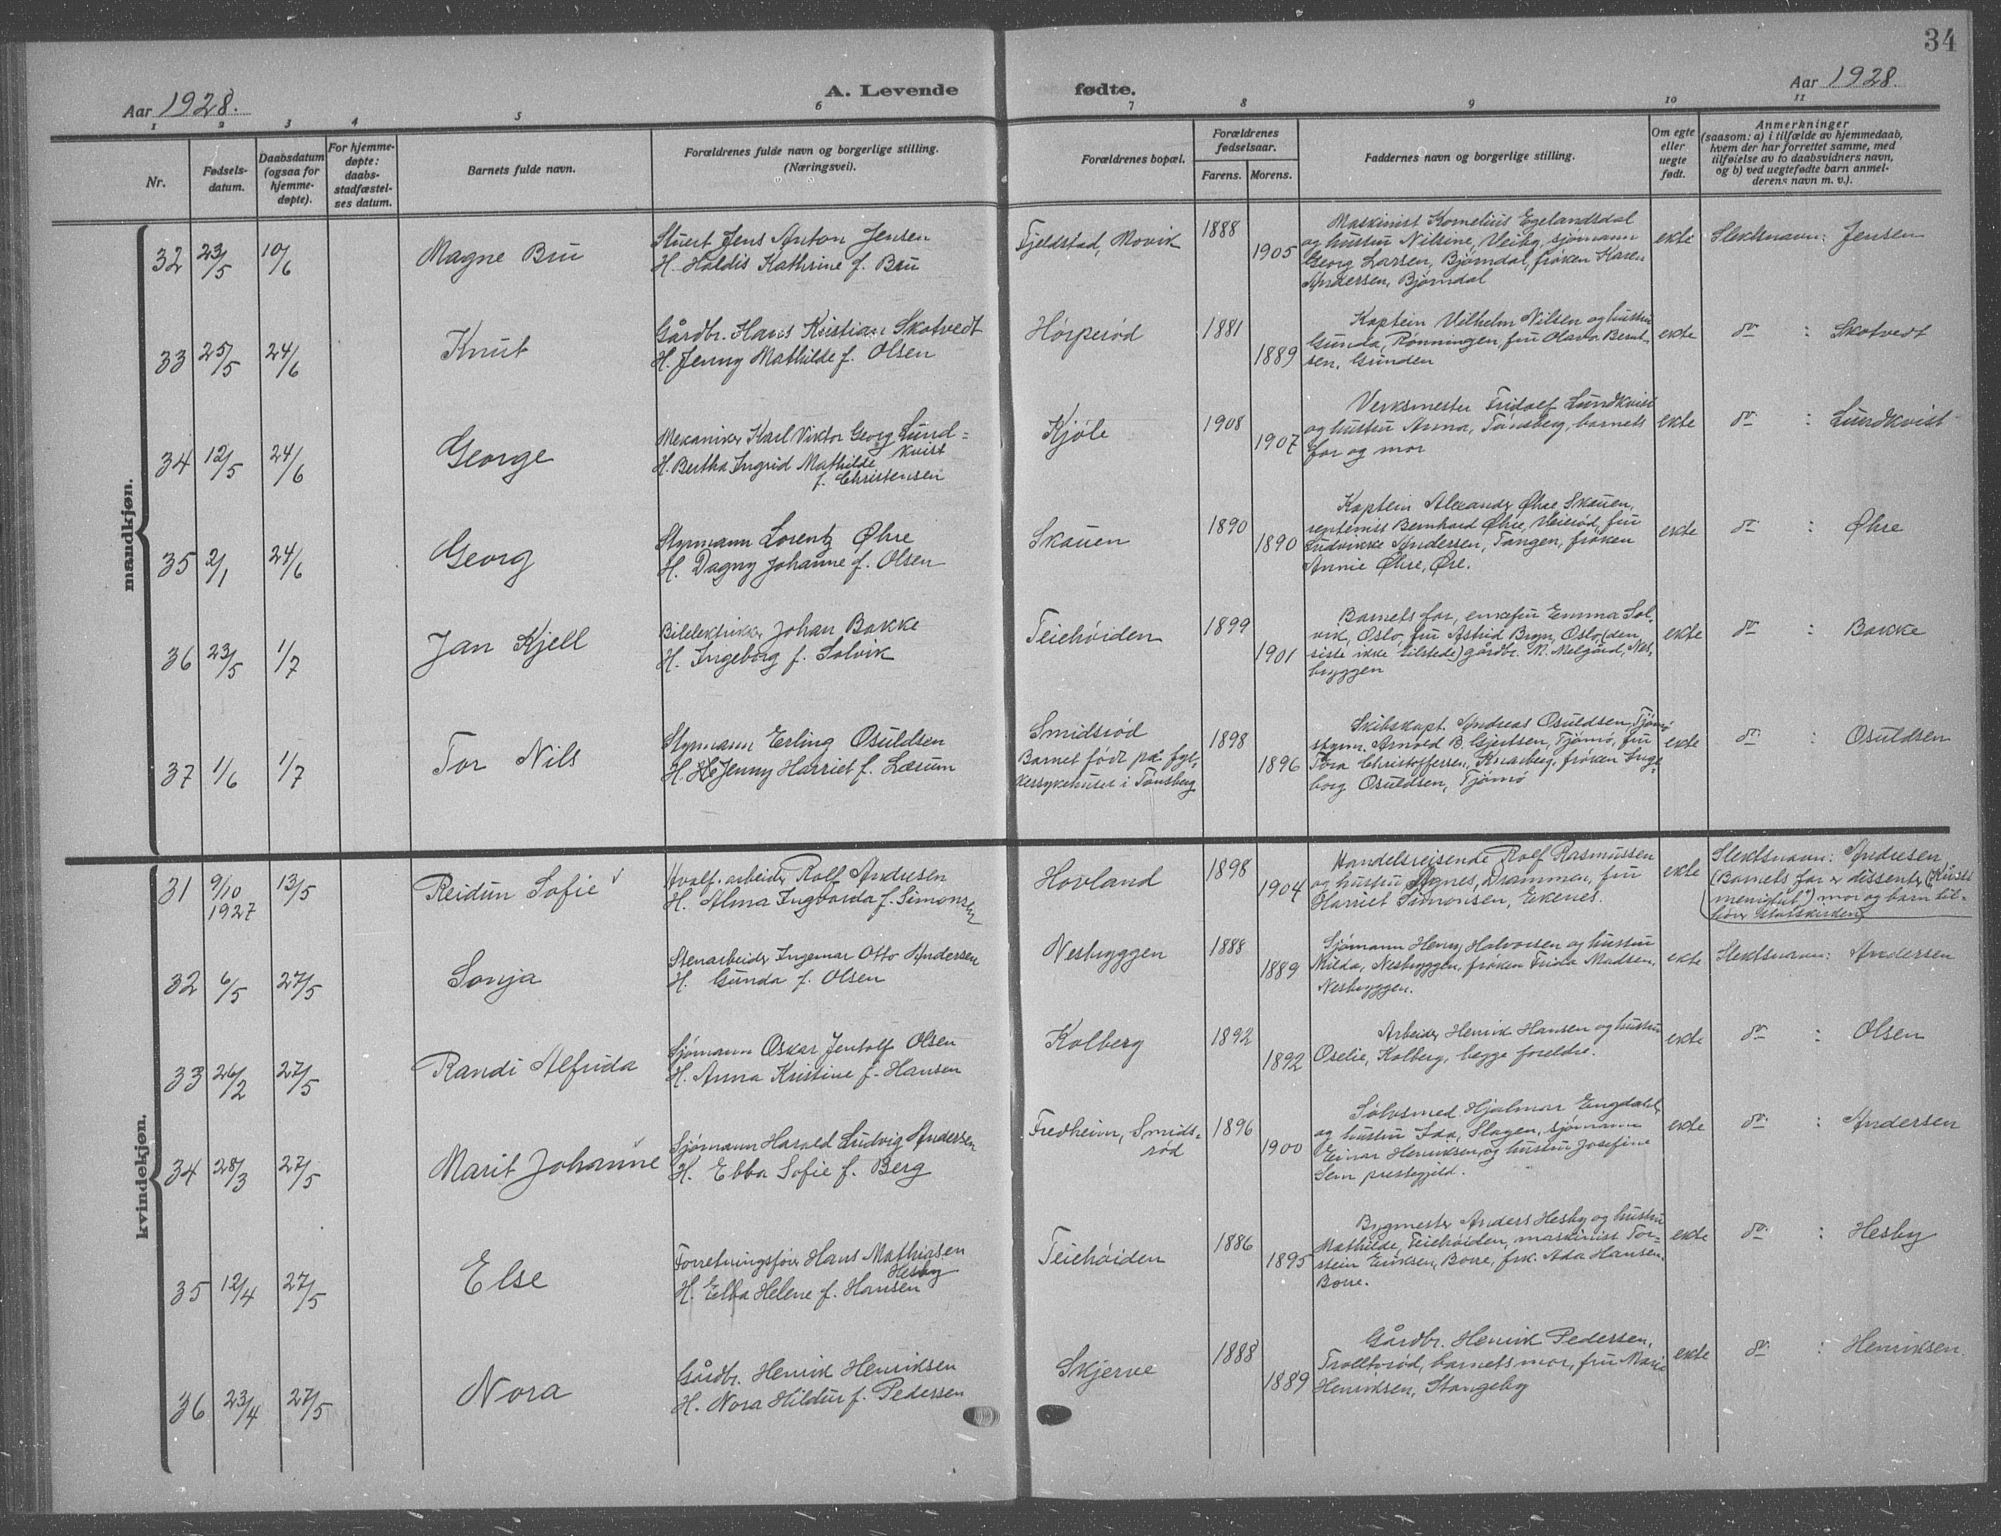 34
Aar 1928.
A. Levende
fødte.
Aar 1928
1 2 3 4 5 6 7 8 9 10 11
Nr.
Fødsels-
datum.
Daabsdatum
(ogsaa for
hjemme-
døpte).
For hjemme-
døpte:
daabs-
stadfæstel-
ses datum.
Barnets fulde navn.
Forældrenes fulde navn og borgerlige stilling.
(Næringsvei).
Forældrenes bopæl.
Forældrenes
fødselsaar.
Farens. Morens.
Faddernes navn og borgerlige stilling.
Om egte
eller
uegte
født.
Anmerkninger
(saasom: a) i tilfælde av hjemmedaab,
hvem der har forrettet samme, med
tilføielse av to daabsvidners navn,
og b) ved uegtefødte barn anmel-
derens navn m. v.).
mandkjøn.
32 23/5 10/6 Magne Bru
Stuert Jens Anton Jensen
H. Haldis Kathrine f. Bru
Fjeldstad, Movik
1888
1905
Maskinist Kornelius Egelandsdal
og hustru Nilsine, Veiby, sjømann
Georg Larsen, Bjørndal, frøken Karen
Andersen, Bjørndal
ekte
Slektsnavn: Jensen
33 25/5 24/6 Knut
Gårdbr. Hans Kristian Skotvedt
H. Jenny Mathilde f. Olsen
Hørperød
1881
1889
Kaptein Vilhelm Nilsen og hustru
Gunda, Rønningen, fru Olava Bernt-
sen, Grinden
ekte
do : Skotvedt
34 12/5 24/6 George
Mekaniker Karl Viktor Georg Lund=
kvist
H. Bertha Ingrid Mathilde
f. Christensen
Kjøle
1908
1907
Verksmester Fridolf Lundkvist
og hustru Anna, Tønsberg, barnets
far og mor
ekte
do : Lundkvist
35 2/1 24/6 Georg
Styrmann Lorentz Øhre
H. Dagny Johanne f. Olsen
Skauen
1890
1890
Kaptein Alexander Øhre Skauen,
Bernhard Øhre, Veierød, fru
Ludvikke Andersen, Tangen, frøken
Annie Øhre, Øre.
ekte
do : Øhre
36 23/5 1/7 Jan Kjell
Bilelektriker Johan Bakke
H. Ingeborg f. Solvik
Teiehøiden
1899
1901
Barnets far, enkefru Emma Sol-
vik, Oslo, fru Astrid Bryn, Oslo (den
siste ikke tilstede) gårdbr. M. Melgård, Nes-
byggen
ekte
do : Bakke
37 1/6 1/7 Tor Nils
Styrmann Erling Osuldsen
H. Jenny Harriet f. Lærum
Smidsrød
Barnet født på fyl-
kessykehuset i Tønsberg
1898
1896
Skibskapt. Andreas Osuldsen, Tjømø
styrm. Arnold B. Gjertsen, Tjømø, fru
Tora Christoffersen, Knarberg, frøken Inge-
borg Osuldsen, Tjømø
ekte
do : Osuldsen
kvindekjøn.
31 9/10 1927 13/5 Reidun Sofie
Hvalf. arbeider Rolf Andresen
H. Alma Ingvarda f. Simonsen
Hovland
1898
1904
Handelsreisende Rolf Rasmussen
og hustru Agnes, Drammen, fru
Harriet Simonsen, Ekenes.
ekte
Slektsnavn: Andresen
(Barnets far er dissenter
menighet") mor og barn til-
hører Statskirken)
32 6/5 27/5 Sonja
Stenarbeider Ingemar Otto Andersen
H. Gunda f. Olsen
Nesbyggen
1888
1889
Sjømann Henry Halvorsen og hustru
Milda, Nesbyggen, frøken Frida Madsen,
Nesbyggen.
ekte
Slektsnavn: Andersen
33 26/2 27/5 Randi Alfrida
Sjømann Oskar Jentolf Olsen
H. Anna Kristine f. Hansen
Kolberg
1892
1892
Arbeider Henrik Hansen og hustru
Oselie, Kolberg, begge foreldre.
ekte
do : Olsen
34 28/3 27/5 Marit Johanne
Sjømann Harald Ludvig Andersen
H. Ebba Sofie f. Berg
Fredheim, Smids-
rød
1896
1900
Sølvsmed Hjalmar Engdahl
og hustru Ida, Slagen, sjømann
Einar Henriksen og hustru Josefine
Sem prestegjeld.
ekte
do : Andersen
35 12/4 27/5 Else
Forretningsfører Hans Mathiasen
Hesby
H. Ebba Helene f. Hansen
Teiehøiden
1886
1895
Bygmester Anders Hesby og hustru
Mathilde, Teiehøiden, maskinist Tor-
stein Eriksen, Borre, frk. Ada Hansen
Borre.
ekte
do : Hesby
36 23/4 27/5 Nora
Gårdbr. Henrik Henriksen
H. Nora Hildur f. Pedersen
Skjerve
1888
1889
Gårdbr. Henrik Pedersen,
Trolltorød, barnets mor, fru Marie
Henriksen, Stangeby
ekte
do : Henriksen.